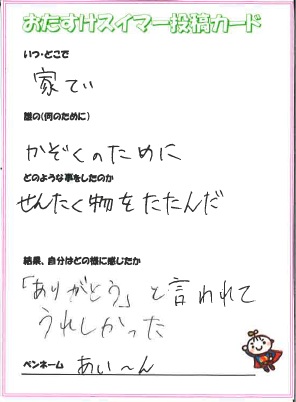 おたすけスイマー投稿カード
いつ・どこで
家でい
誰の(何のために)
かぞくのために
どのような事をしたのか
せんたく物をたたんだ
結果、自分はどの様に感じたか
「ありがとう」と言われて
うれしかった
ペンネーム あい〜ん